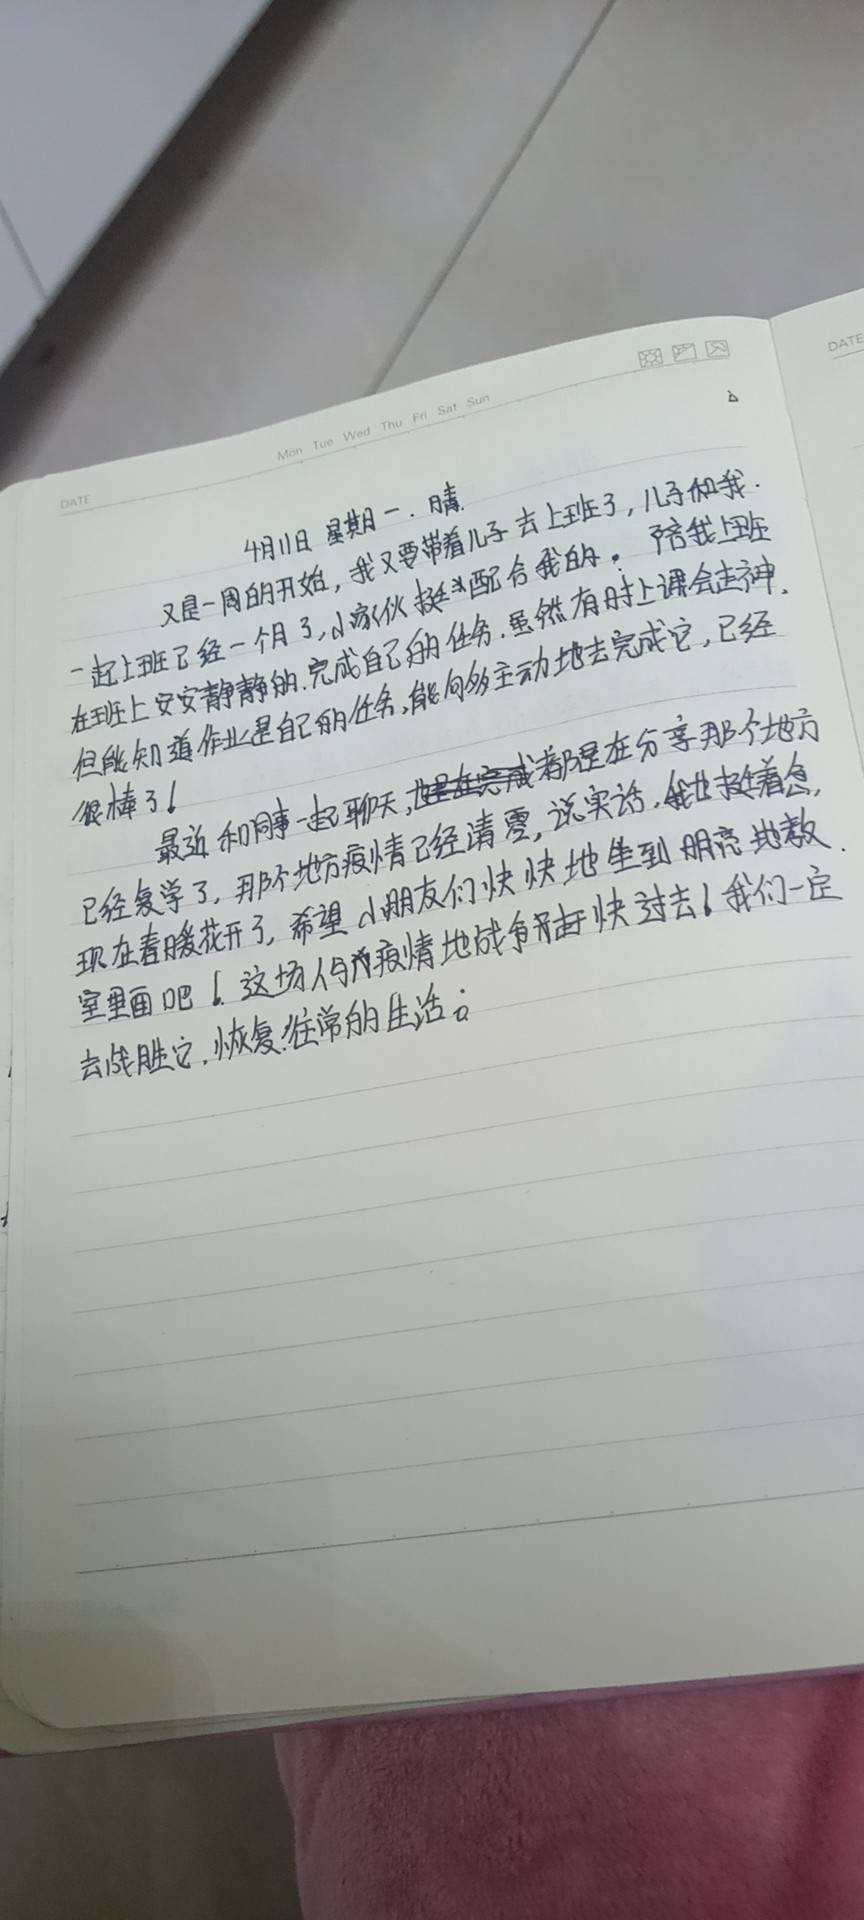 DATE
Mon Tue Wed Thu Fri Sat Sun
DATE
4月11日 星期一. 晴.
又是一周的开始, 我又要带着儿子去上班了, 儿子和我.
一起上班已经一个月了, 小家伙挺配合我的。陪我上班
在班上安安静静的.完成自己的任务.虽然有时上课会走神.
但能知道作业是自己的任务,能够主动地去完成它,已经
很棒了!
最近和同事一起聊天,都是在分享那个地方
已经复学了, 那个地方疫情已经清零, 说实话.我也挺着急,
现在春暖花开了, 希望小朋友们快快地坐到明亮地教.
室里面吧! 这场人与疫情地战争赶快过去! 我们一定
去战胜它. 恢复往常的生活。